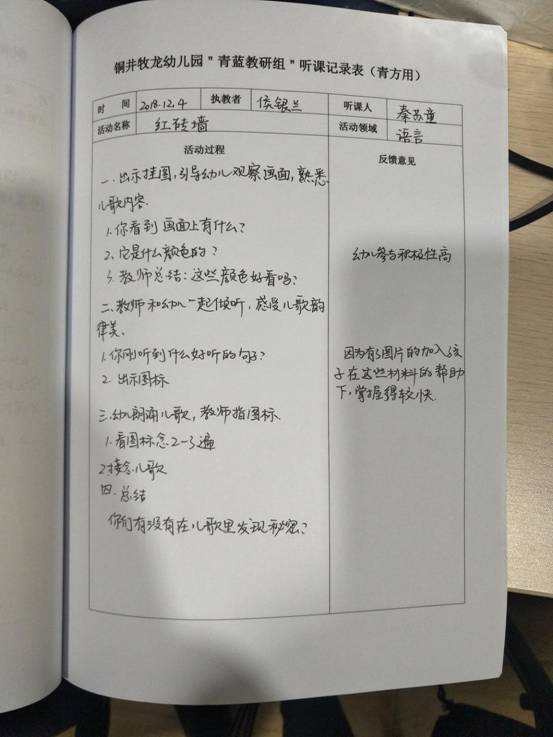 铜井牧龙幼儿园＂青蓝教研组＂听课记录表（青方用）
时 间 2018.12.4 执教者 侯银兰 听课人 秦苏童
活动名称 红砖墙 活动领域 语言
活动过程 反馈意见
一.出示挂图,引导幼儿观察画面,熟悉
儿歌内容.
1.你看到画面上有什么?
2.它是什么颜色的?
3.教师总结:这些颜色好看吗?
二、教师和幼儿一起倾听,感受儿歌的
律美.
1.你刚听到什么好听的句子?
2.出示图标
三.幼儿朗诵儿歌,教师指图标
1.看图标念2-3遍
2接念儿歌
四.总结
你们有没有在儿歌里发现秘密?
幼儿参与积极性高
因为有了图片的加入孩
子在这些材料的帮助
下,掌握得较快